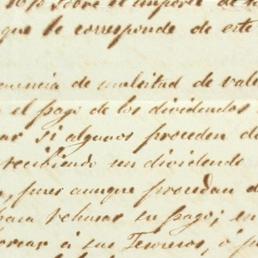 10 p% sobre el importe de la
que le corresponde de este
uencia de multitud de vale
n el pago de los dividendos
ar si algunos proceden de
recibiendo un dividendo
, pues aunque procedan d
para rehusar su pago; en
orear á sus Tesoreros, ó p